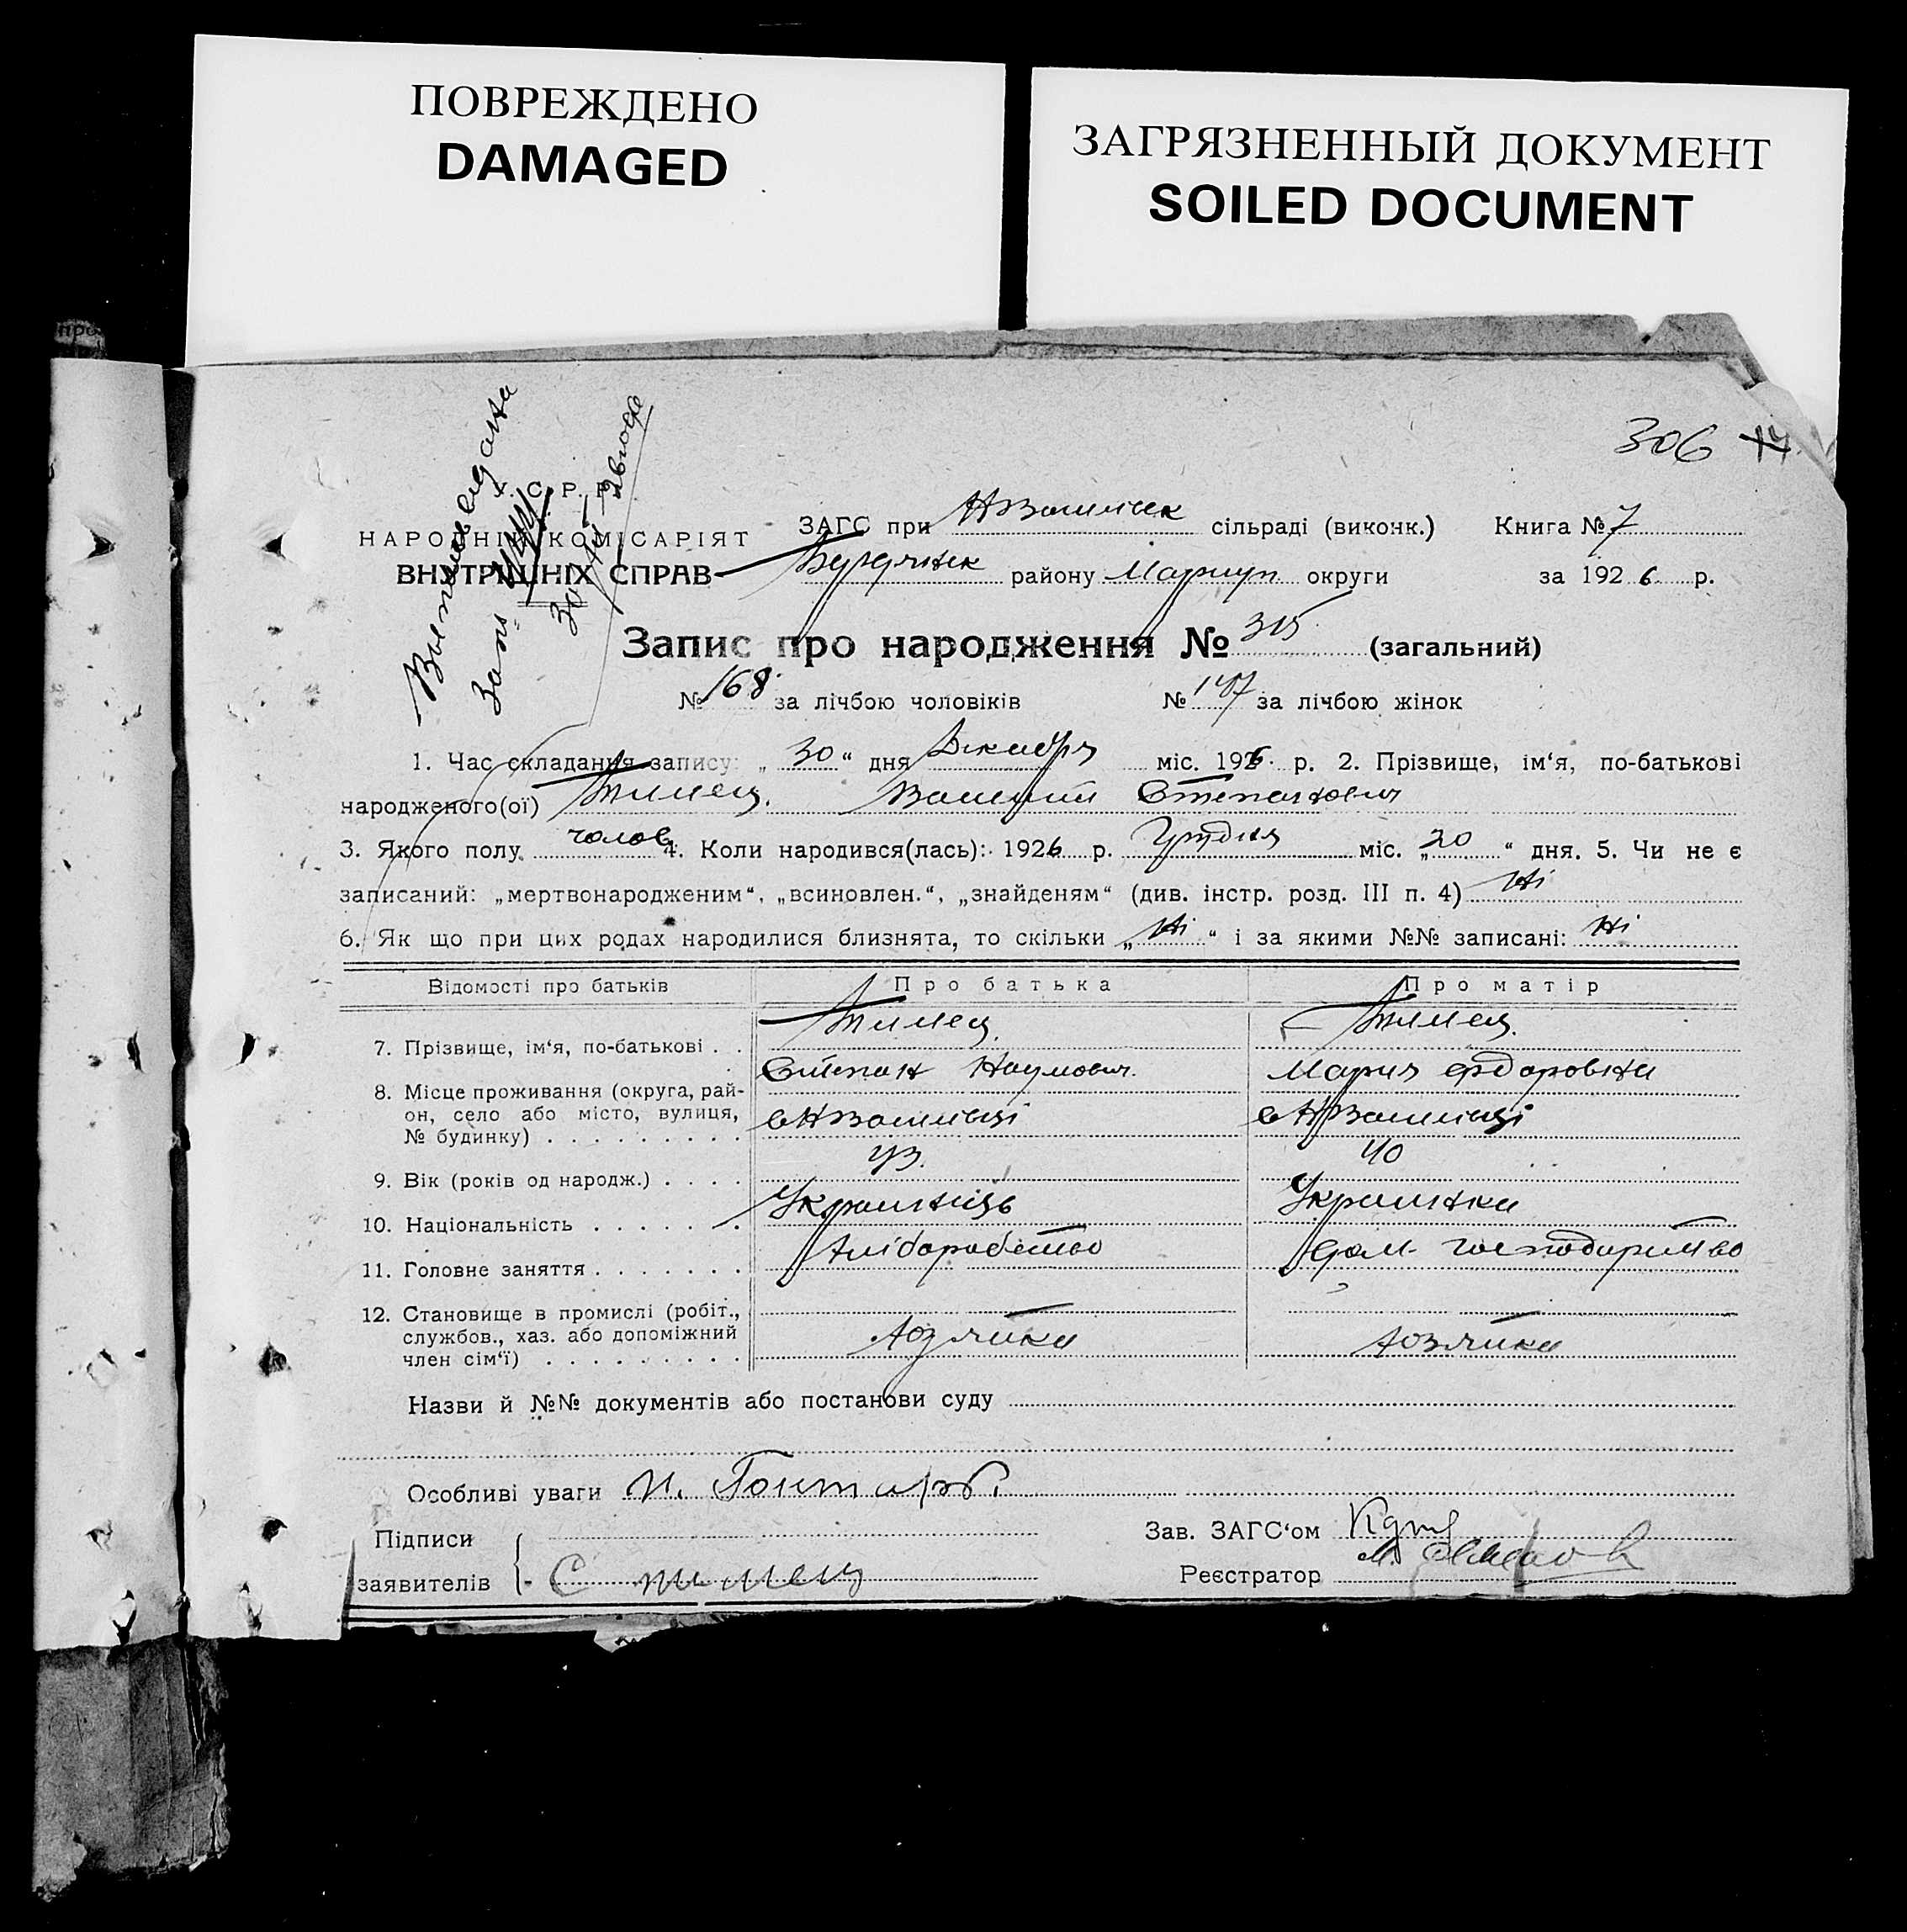 ПОВРЕЖДЕНО
DAMAGED
ЗАГРЯЗНЕННЫЙ ДОКУМЕНТ
SOILED DOCUMENT
306
У.С.Р.Р.
НАРОДНІЙ КОМІСАРІЯТ
ВНУТРІШНІХ СПРАВ
ЗАГС при сільраді (виконк.) Книга № 7
району Мариуп округи за 1926 р.
Запис про народження № 315 (загальний)
№ 168 за лічбою чоловіків № 147 за лічбою жінок
1. Час складання запису: „30“ дня Декабря міс. 1926 р. 2. Прізвище, ім‘я, по-батькові
народженого(ої) Степанович
3. Якого полу чолов 4. Коли народився(лась): 1926 р. Грудня міс. „20“ дня. 5. Чи не є
записаний: „мертвонародженим“, „всиновлен.“, „знайденям“ (див. інстр. розд. III п. 4) Ні
6. Як що при цих родах народилися близнята, то скільки „Ні“ і за якими №№ записані: Ні
Відомості про батьків Про батька Про матір
7. Прізвище, ім‘я, по-батькові . .
Степан Наумович Мария Фдоровна
8. Місце проживання (округа, рай-
он, село або місто, вулиця,
№ будинку) . . . . . . . . .
9. Вік (років од народж.) . . . . 43. 40
10. Національність . . . . . . . Українець Українка
11. Головне заняття . . . . . . . Хліборобство Дом. господарство
12. Становище в промислі (робіт.,
службов., хаз. або допоміжний
член сім‘ї) . . . . . . . . . Хозяйка Хозяйка
Назви й №№ документів або постанови суду
Особливі уваги И. Гонтарь.
Підписи
заявителів
Зав. ЗАГС‘ом
Реєстратор